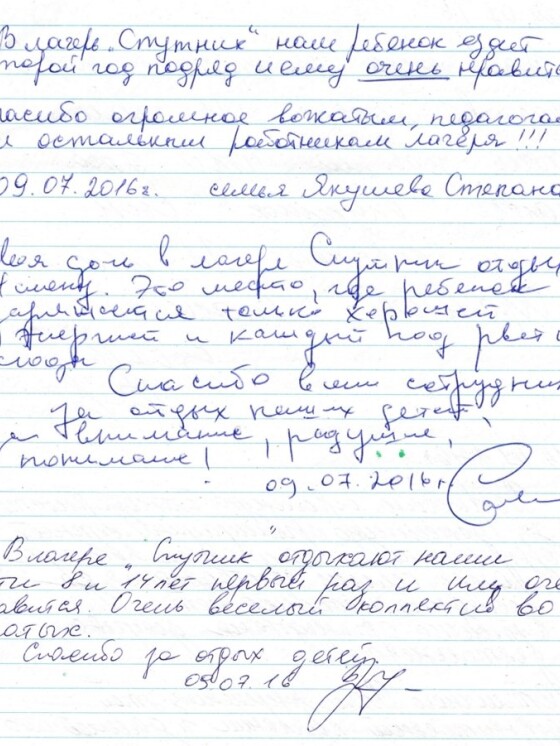 В лагерь „Спутник“ наш ребенок ездит
торой год подряд и ему очень нравитс
пасибо огромное вожатым, педагогам
и остальным работникам лагеря !!!
09.07.2016г. семья Якушева Степана
моя дочь в лагере Спутник отды
смену. Это место, где ребенок
заряжается только хорошей
энергией и каждый год рвется
сюда
Спасибо всем сотрудник
за отдых наших детей,
за внимание, радушие,
понимание!
09.07.2016г
В лагере „Спутник“ отдыхают наши
ти 8 и 14 лет первый раз и им оче
равится. Очень веселый коллектив во
атых.
Спасибо за отдых детей.
09.07.16